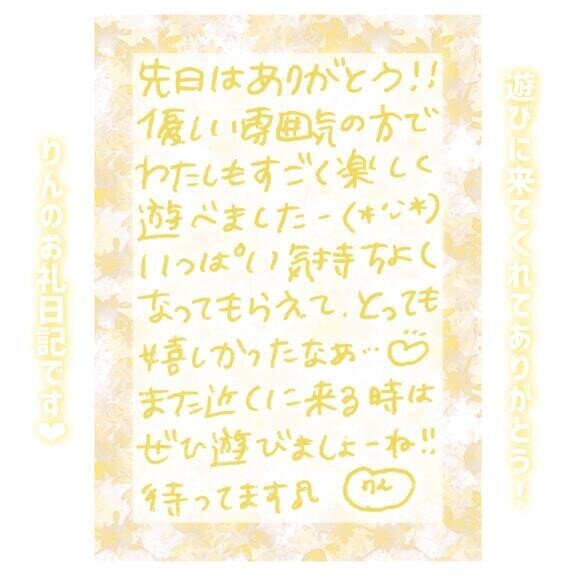 遊びに来てくれてありがとう!
先日はありがとう!!
優しい雰囲気の方で
わたしもすごく楽しく
遊べましたー(*'ᵕ'*)
いっぱい気持ちよく
なってもらえて、とっても
嬉しかったなぁ…♡
また近くに来る時は
ぜひ遊びましょーね!!
待ってます♫ りん
りんのお礼日記です❤